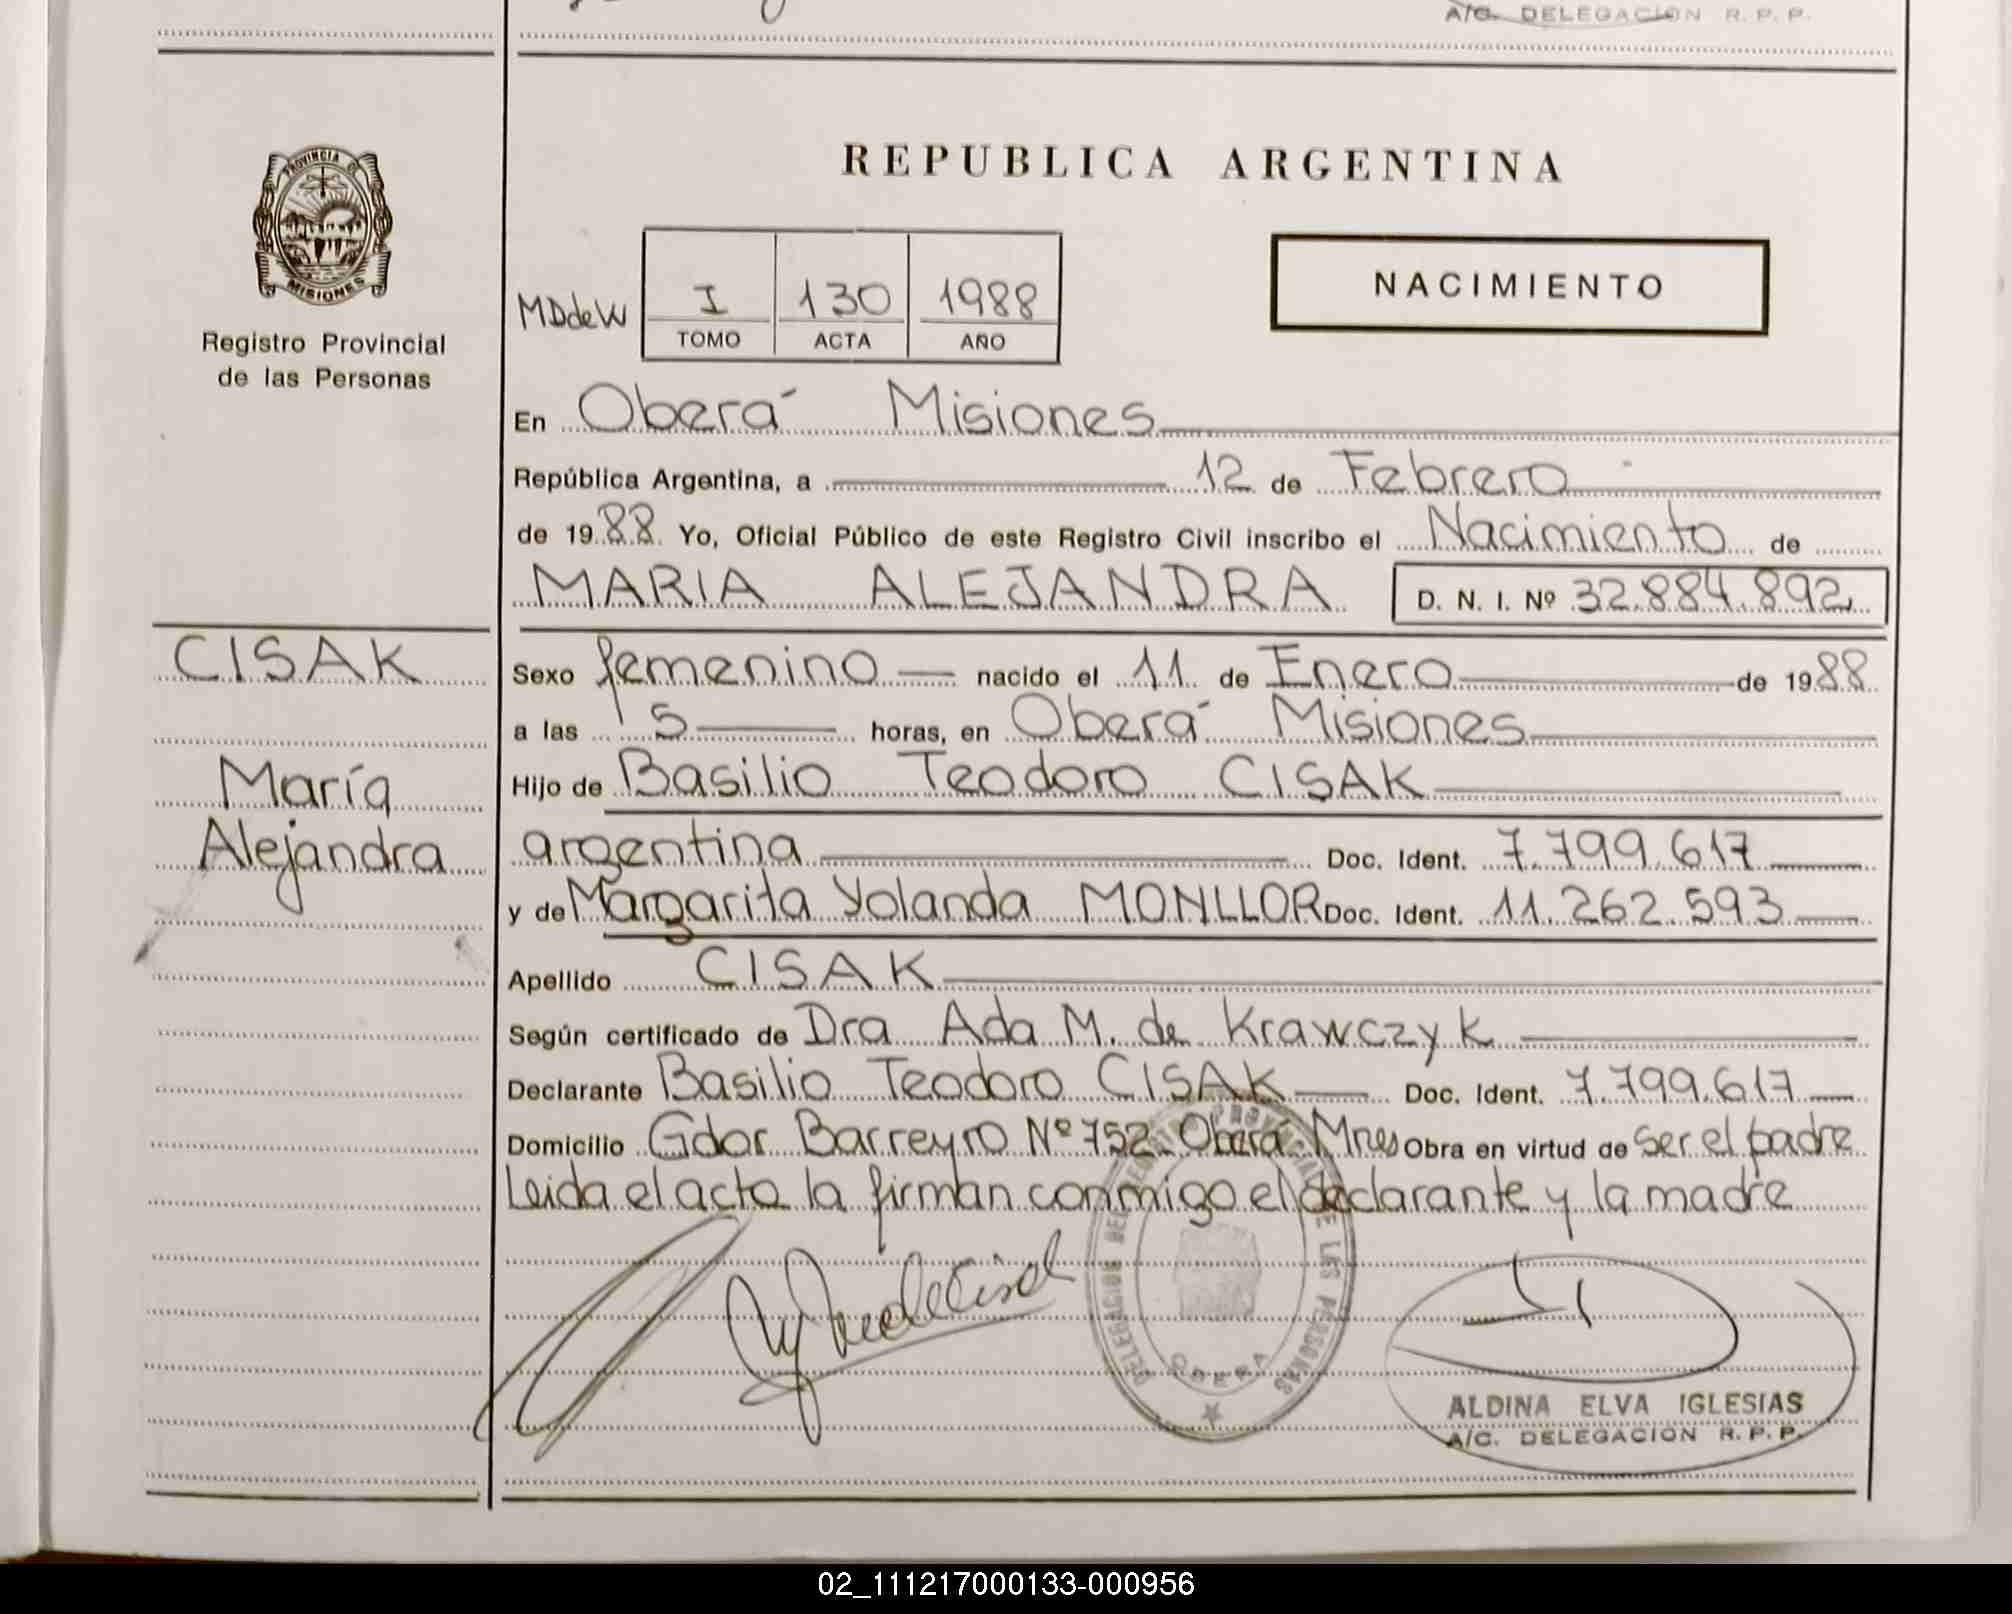 A/C. DELEGACION R. P. P.
PROVINCIA DE
MISIONES
Registro Provincial
de las Personas
CISAK
María
Alejandra
REPUBLICA ARGENTINA
NACIMIENTO
MDdeW I 130 1988
TOMO ACTA AÑO
En Oberá Misiones
República Argentina, a 12 de Febrero
de 1988 Yo, Oficial Público de este Registro Civil inscribo el Nacimiento de
MARIA ALEJANDRA D. N. I. Nº 32.884.892
Sexo femenino nacido el 11 de Enero de 1988
a las 5 horas, en Oberá Misiones
Hijo de Basilio Teodoro CISAK
argentina Doc. Ident. 7.799.617
y de Margarita Yolanda MONLLOR Doc. Ident. 11.262.593
Apellido CISAK
Según certificado de Dra Ada M. de Krawczyk
Declarante Basilio Teodoro CISAK Doc. Ident. 7.799.617
Domicilio Gdor Barreyro Nº 752 Oberá Mnes Obra en virtud de ser el padre
Leida el acta la firman conmigo el declarante y la madre
DELEGACION DEL REGISTRO PROVINCIAL DE LAS PERSONAS
OBERA
ALDINA ELVA IGLESIAS
A/C. DELEGACION R. P. P.
02_111217000133-000956